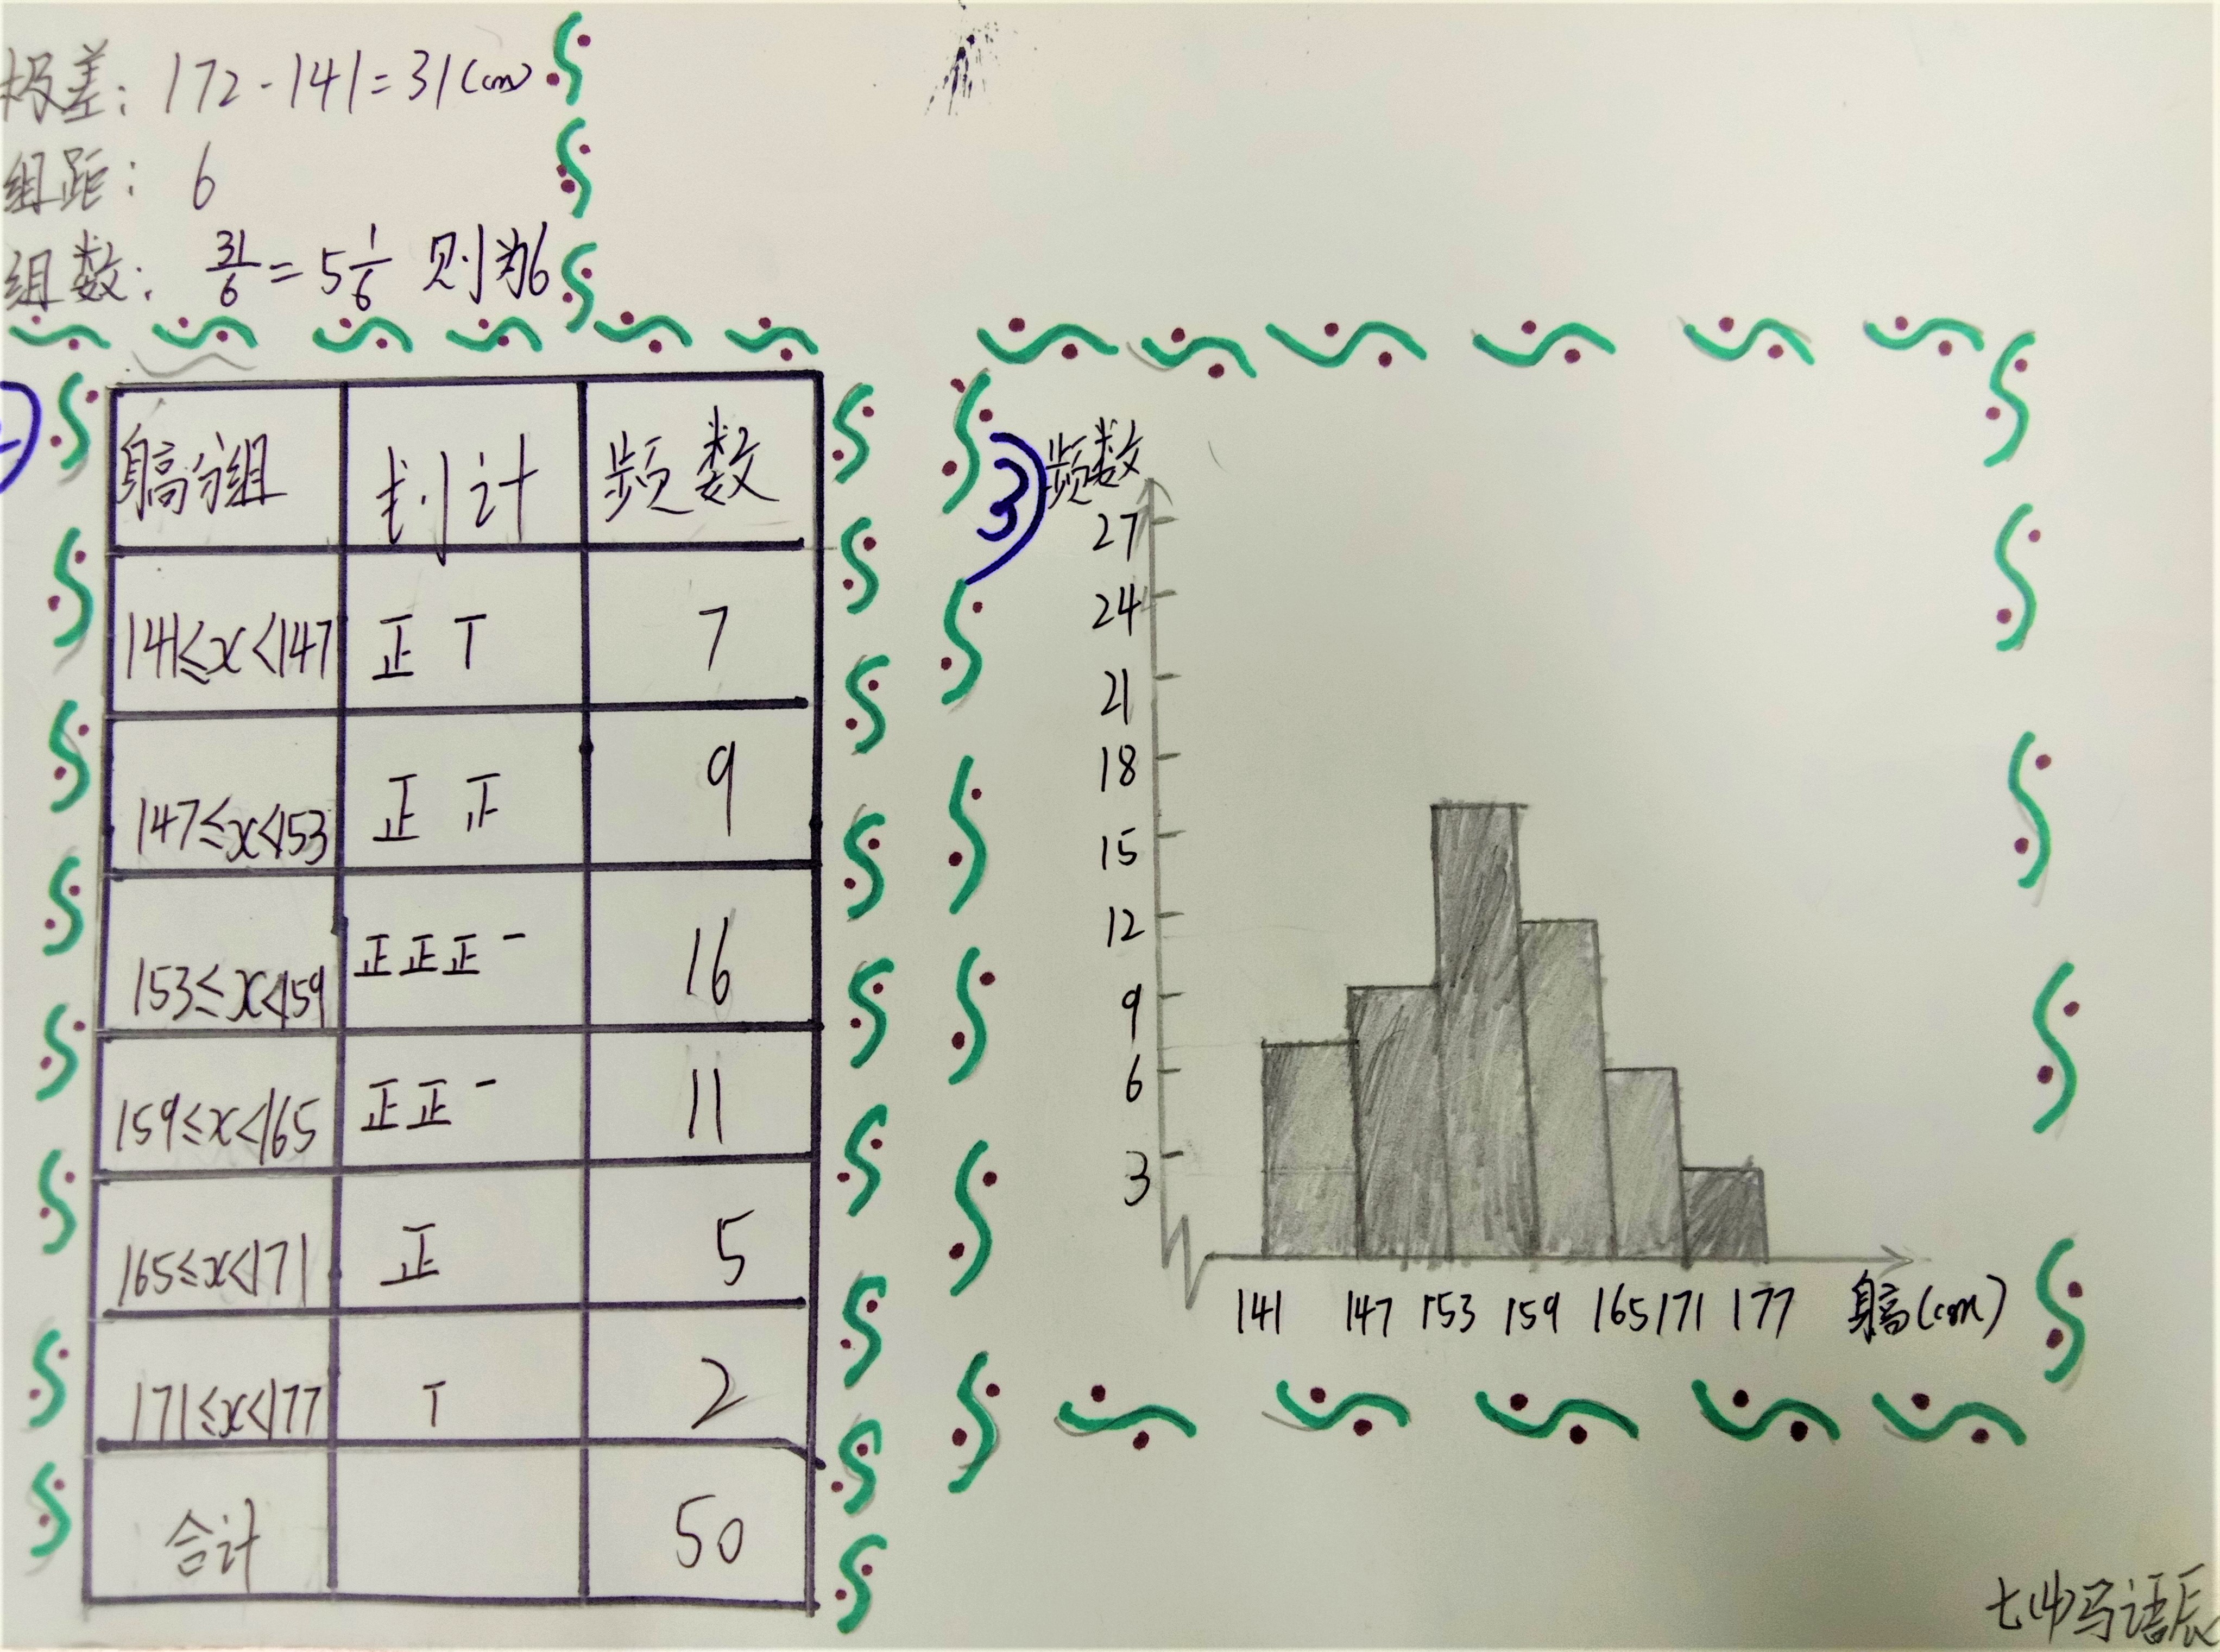 极差: 172-141=31(cm)
组距: 6
组数: 31/6=5 1/6 则为6
身高分组 划计 频数
141≤x<147 正 T 7
147≤x<153 正 正 9
153≤x<159 正正正一 16
159≤x<165 正正一 11
165≤x<171 正 5
171≤x<177 T 2
合计 50
3
频数
27
24
21
18
15
12
9
6
3
141 147 153 159 165 171 177 身高(cm)
七(4)马语辰